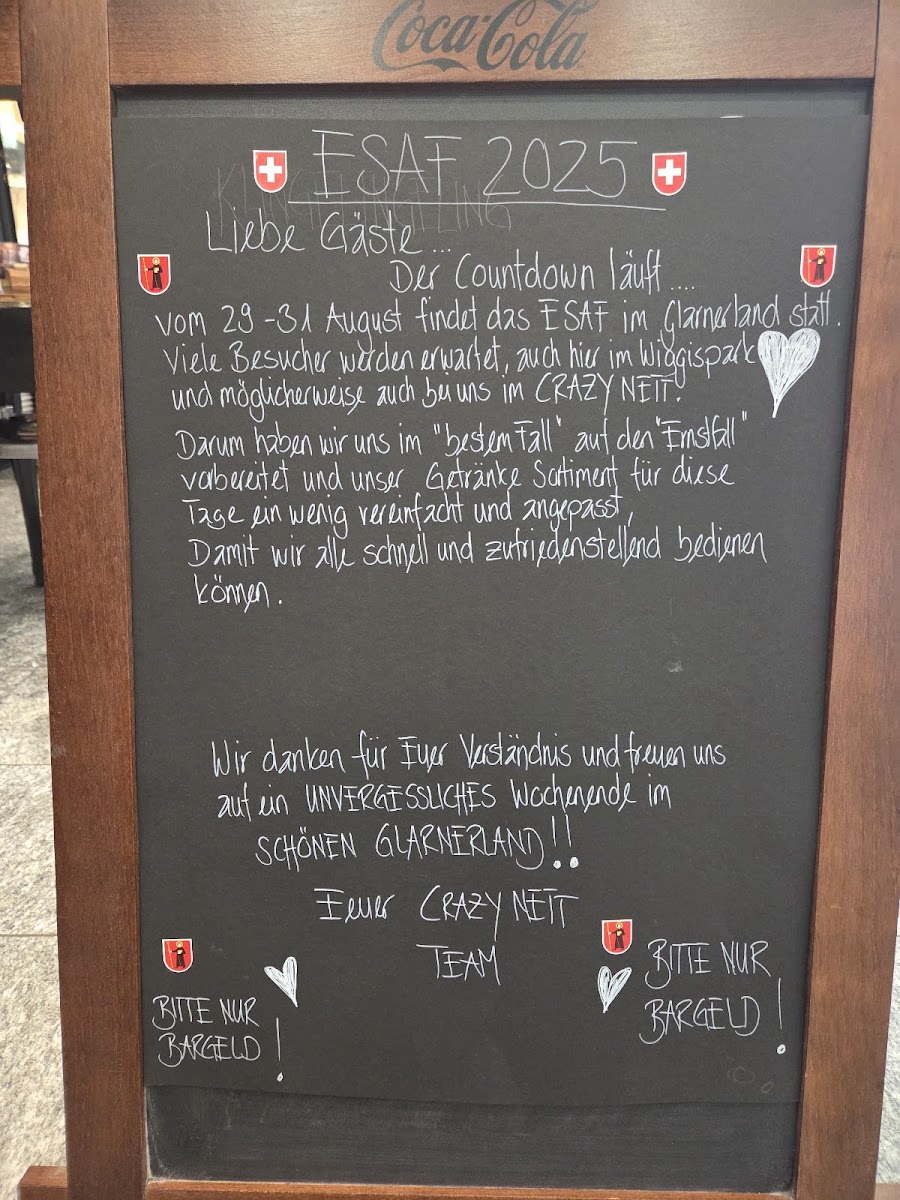 Coca-Cola
ESAF 2025
Liebe Gäste ...
Der Countdown läuft ....
vom 29-31 August findet das ESAF im Glarnerland statt.
Viele Besucher werden erwartet, auch hier im Wiggispark
und möglicherweise auch bei uns im CRAZY NETT.
Darum haben wir uns im "bestem Fall" auf den "Ernstfall"
vorbereitet und unser Getränke Sortiment für diese
Tage ein wenig vereinfacht und angepasst,
Damit wir alle schnell und zufriedenstellend bedienen
können.
Wir danken für Euer Verständnis und freuen uns
auf ein UNVERGESSLICHES Wochenende im
SCHÖNEN GLARNERLAND!!
Euer CRAZY NETT
TEAM
BITTE NUR
BARGELD!
BITTE NUR
BARGELD!